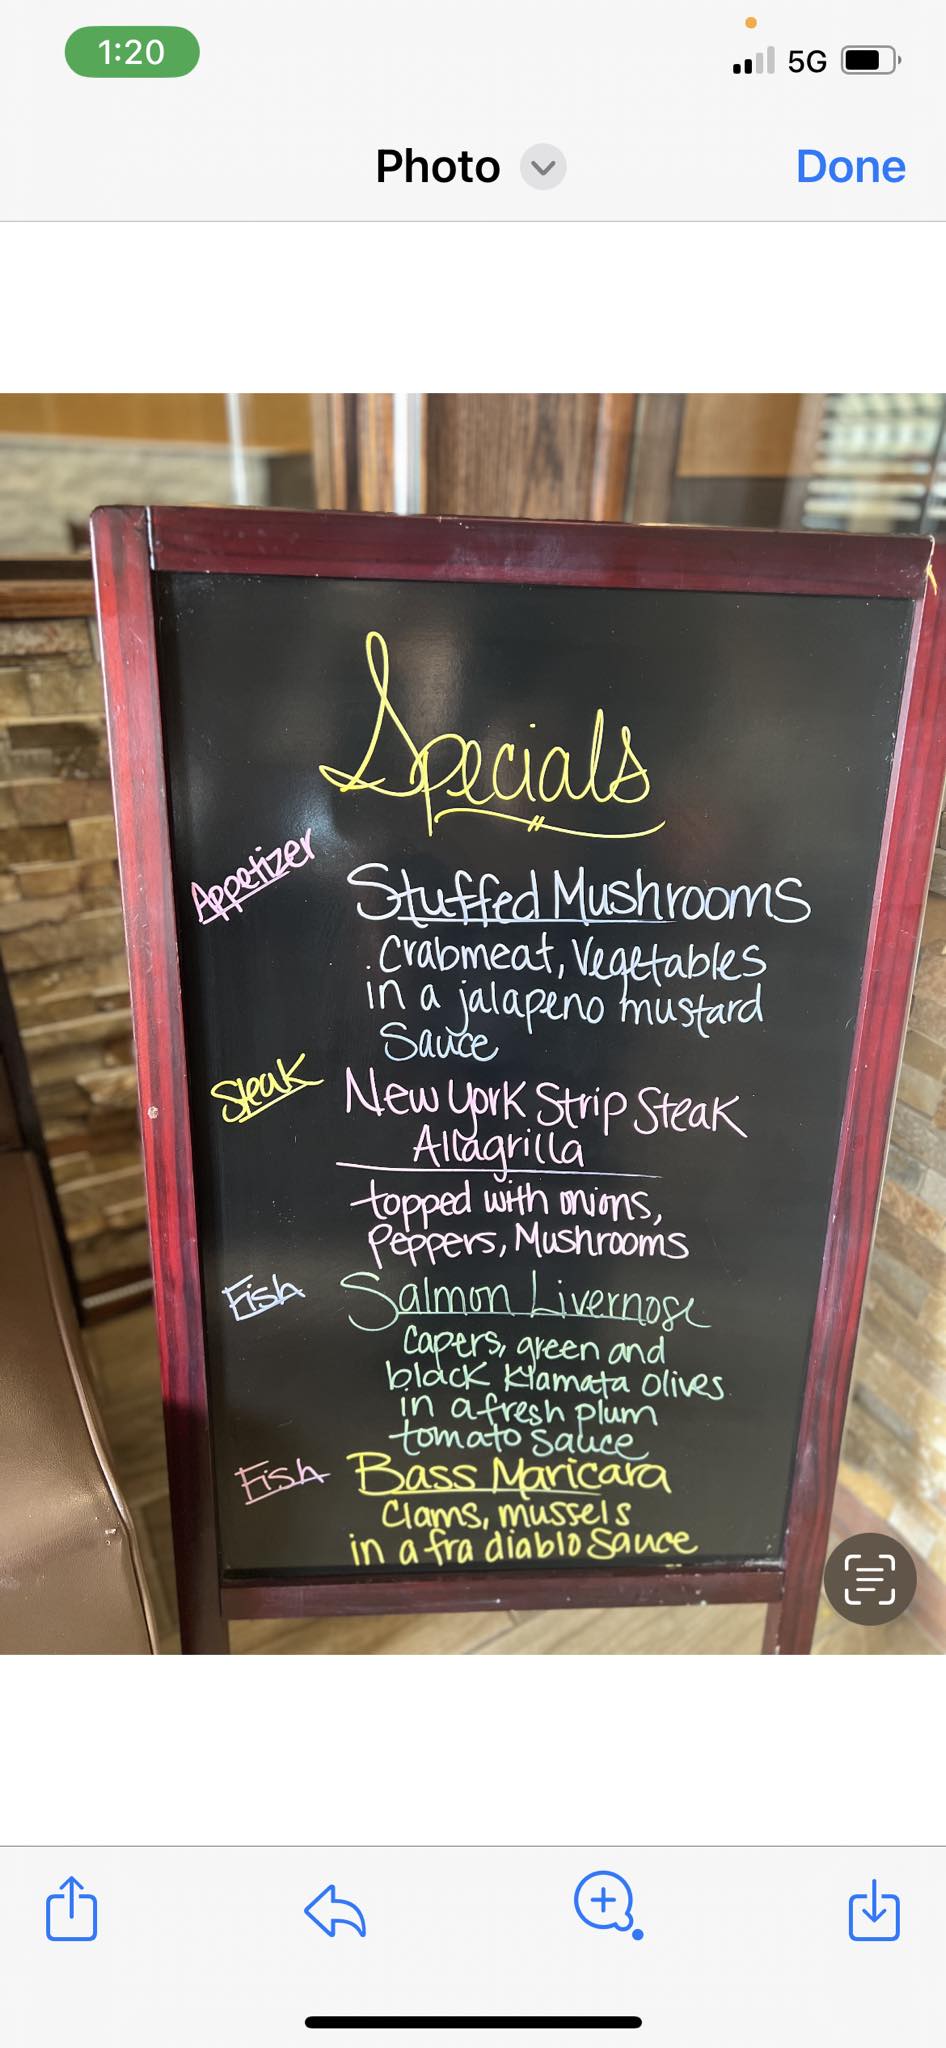 1:20
5G
Photo
Done
Specials
Appetizer
Stuffed Mushrooms
Crabmeat, Vegetables
in a jalapeno mustard
Sauce
Steak
New York Strip Steak
Allagrilla
topped with onions,
Peppers, Mushrooms
Fish
Salmon Livernose
Capers, green and
black Klamata olives
in a fresh plum
tomato sauce
Fish
Bass Maricara
Clams, mussels
in a fra diablo Sauce